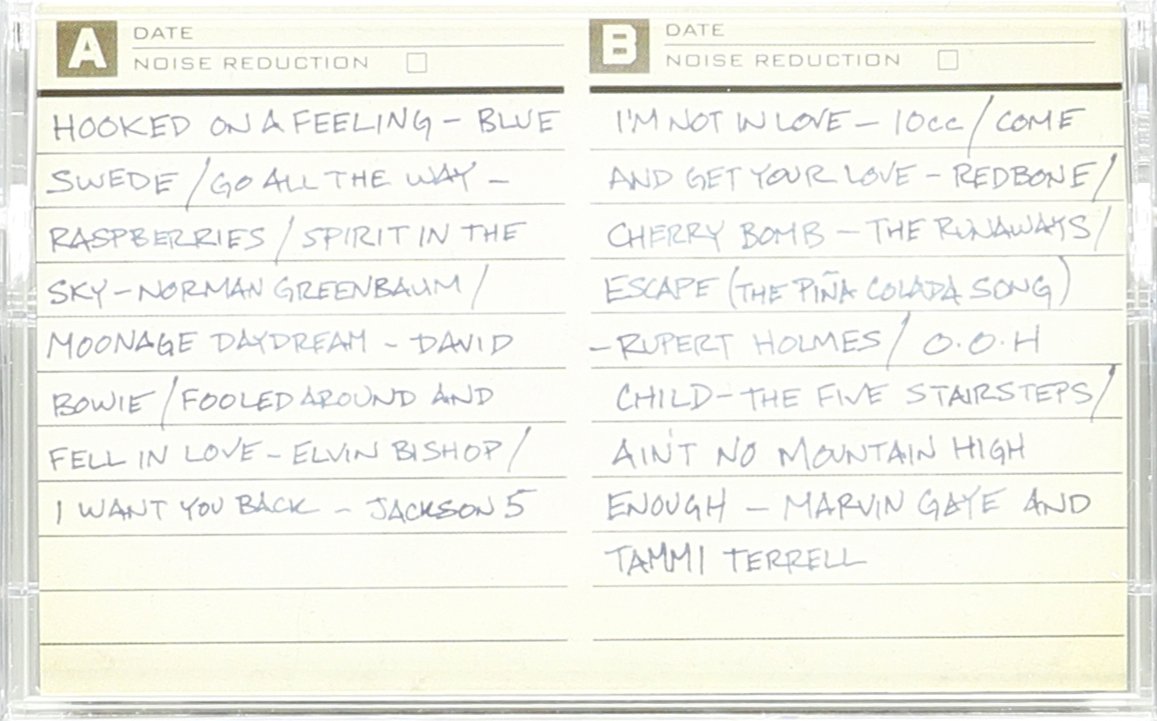 A DATE
NOISE REDUCTION
HOOKED ON A FEELING - BLUE
SWEDE / GO ALL THE WAY -
RASPBERRIES / SPIRIT IN THE
SKY - NORMAN GREENBAUM /
MOONAGE DAYDREAM - DAVID
BOWIE / FOOLED AROUND AND
FELL IN LOVE - ELVIN BISHOP /
I WANT YOU BACK - JACKSON 5
B DATE
NOISE REDUCTION
I'M NOT IN LOVE - 10cc / COME
AND GET YOUR LOVE - REDBONE /
CHERRY BOMB - THE RUNAWAYS /
ESCAPE (THE PIÑA COLADA SONG)
- RUPERT HOLMES / O.O.H
CHILD - THE FIVE STAIRSTEPS /
AIN'T NO MOUNTAIN HIGH
ENOUGH - MARVIN GAYE AND
TAMMI TERRELL